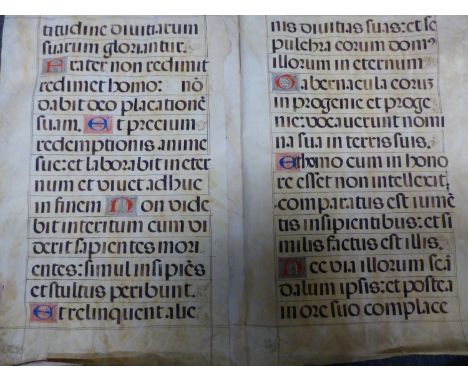 titudine diuitiarum
suarum gloriantur.
Frater non redimit
redimet homo: nō
dabit deo placationē
suam. Et precium
redemptionis anime
sue: et laborabit in eter
num et viuet adhuc
in finem Non vide
bit interitum cum vi
derit sapientes mori
entes: simul insipiēs
et stultus peribunt.
Et relinquent alie
nis diuitias suas: et se
pulchra eorum domꝰ
illorum in eternum
Tabernacula eorum
in progenie et proge
nie: vocauerunt nomi
na sua in terris suis.
Et homo cum in hono
re esset non intellexit
comparatus est iumē
tis insipientibus: et si
milis factus est illis.
Hec via illorum scā
dalum ipsis: et postea
in ore suo complace